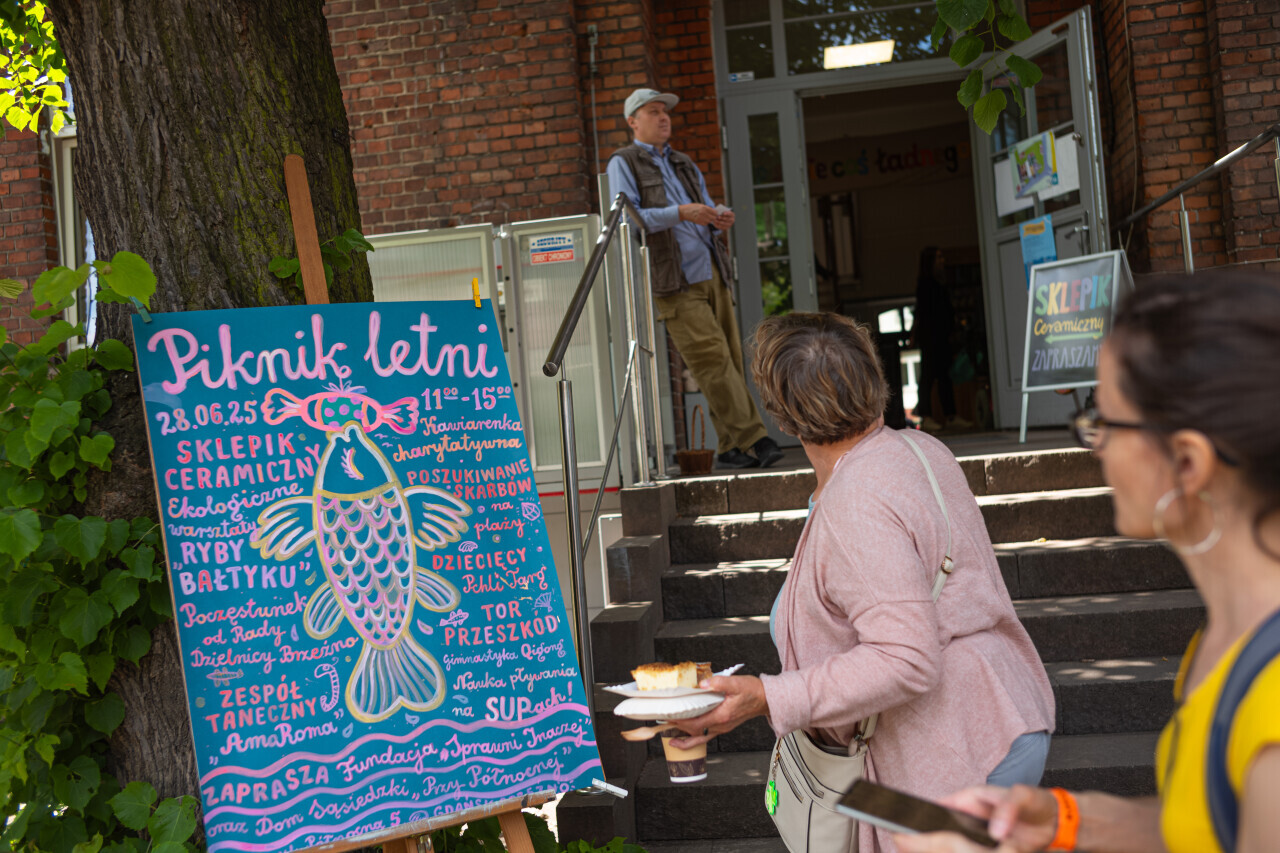 Piknik letni
28.06.25
11⁰⁰-15⁰⁰
SKLEPIK
CERAMICZNY
Ekologiczne
warsztaty
"RYBY
BAŁTYKU"
Poczęstunek
od Rady
Dzielnicy Brzeźno
ZESPÓŁ
TANECZNY
"AmaRoma"
Kawiarenka
charytatywna
POSZUKIWANIE
SKARBÓW
na
plaży
DZIECIĘCY
Pchli Targ
TOR
PRZESZKÓD
Gimnastyka Qigong
Nauka pływania
na SUPach!
ZAPRASZA Fundacja „Sprawni Inaczej"
oraz Dom Sąsiedzki „Przy Północnej"
Północna 5
SECURITY
OBIEKT CHRONIONY
SKLEPIK
Ceramiczny
ZAPRASZAMY